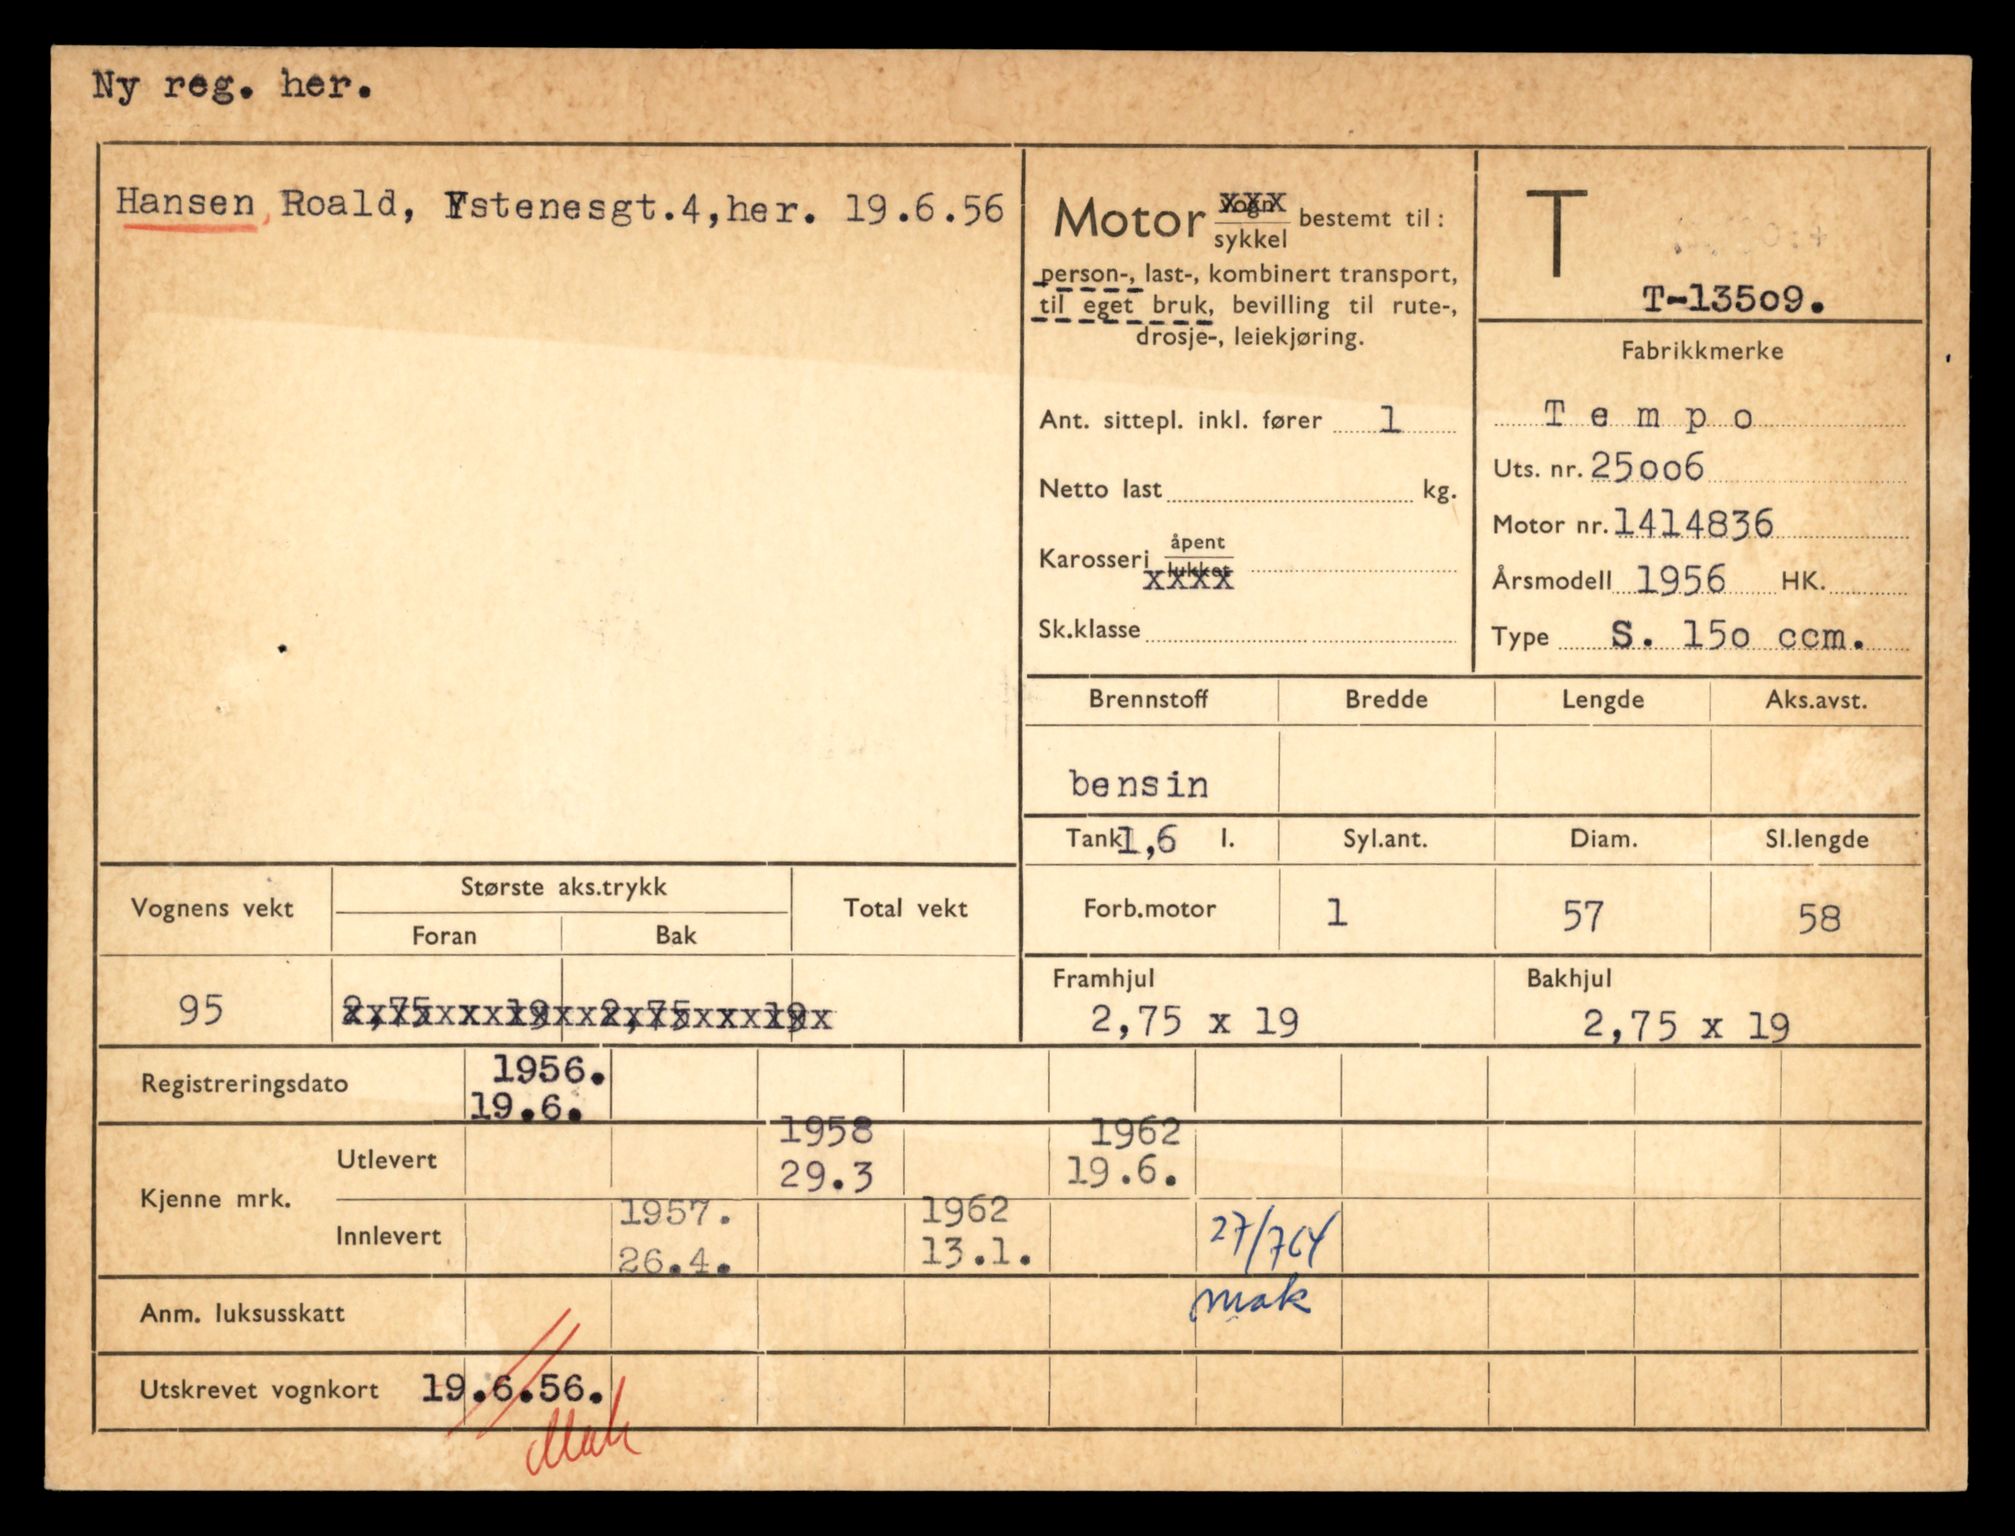 Ny reg. her.
Hansen, Roald, Ystenesgt.4,her. 19.6.56
Motor vogn sykkel bestemt til:
person-, last-, kombinert transport,
til eget bruk, bevilling til rute-,
drosje-, leiekjøring.
Ant. sittepl. inkl. fører 1
Netto last kg.
Karosseri åpent lukket
xxxx
Sk.klasse
T
T-13509.
Fabrikkmerke
Tempo
Uts. nr. 25006
Motor nr. 1414836
Årsmodell 1956 HK.
Type S. 150 ccm.
Brennstoff Bredde Lengde Aks.avst.
bensin
Tank 1,6 l. Syl.ant. Diam. Sl.lengde
Forb.motor 1 57 58
Framhjul Bakhjul
2,75 x 19 2,75 x 19
Vognens vekt Største aks.trykk Total vekt
Foran Bak
95 2,75 x 19 2,75 x 19
Registreringsdato 1956.
19.6.
Kjenne mrk.
Utlevert 1958 1962
29.3 19.6.
Innlevert 1957. 1962
26.4. 13.1. 27/7 64
mak
Anm. luksusskatt
Utskrevet vognkort 19.6.56.
Mak